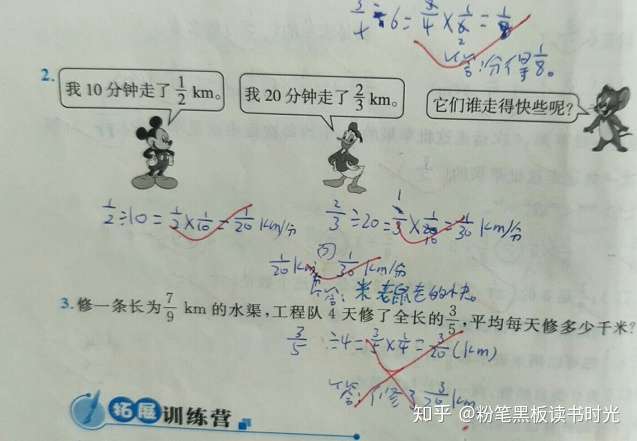 3/4÷6=3/4×1/6=1/8
答:分得1/8。
2.
我 10 分钟走了 1/2 km。
我 20 分钟走了 2/3 km。
它们谁走得快些呢?
1/2÷10=1/2×1/10=1/20 km/分
2/3÷20=2/3×1/20=1/30 km/分
1/20 km 1/30 km/分
答:米老鼠走的快。
3.修一条长为 7/9 km 的水渠,工程队 4 天修了全长的 3/5,平均每天修多少千米?
3/5÷4=3/5×1/4=3/20(km)
答: 修 3/20 km
拓展训练营
知乎 @粉笔黑板读书时光